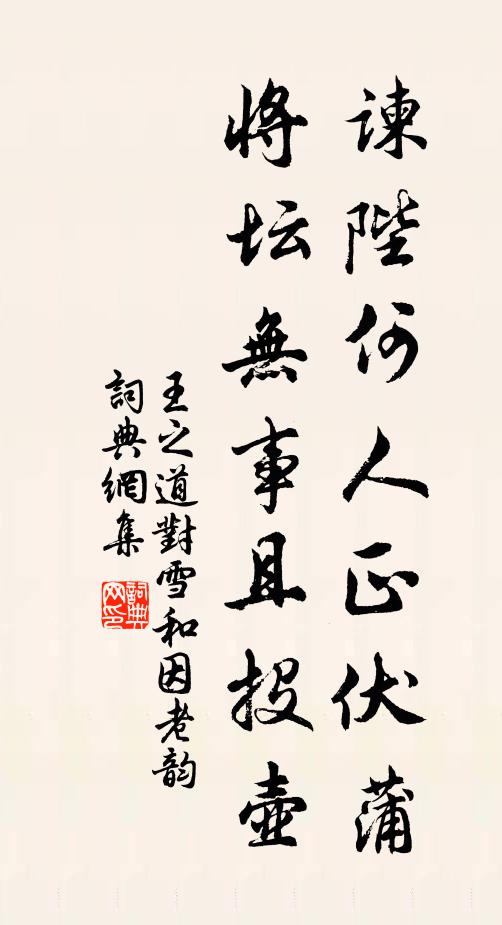 諫陛何人正伏蒲
将坛無事且投壺
王之道對雪和因老韵
詞典網集
詞典网印